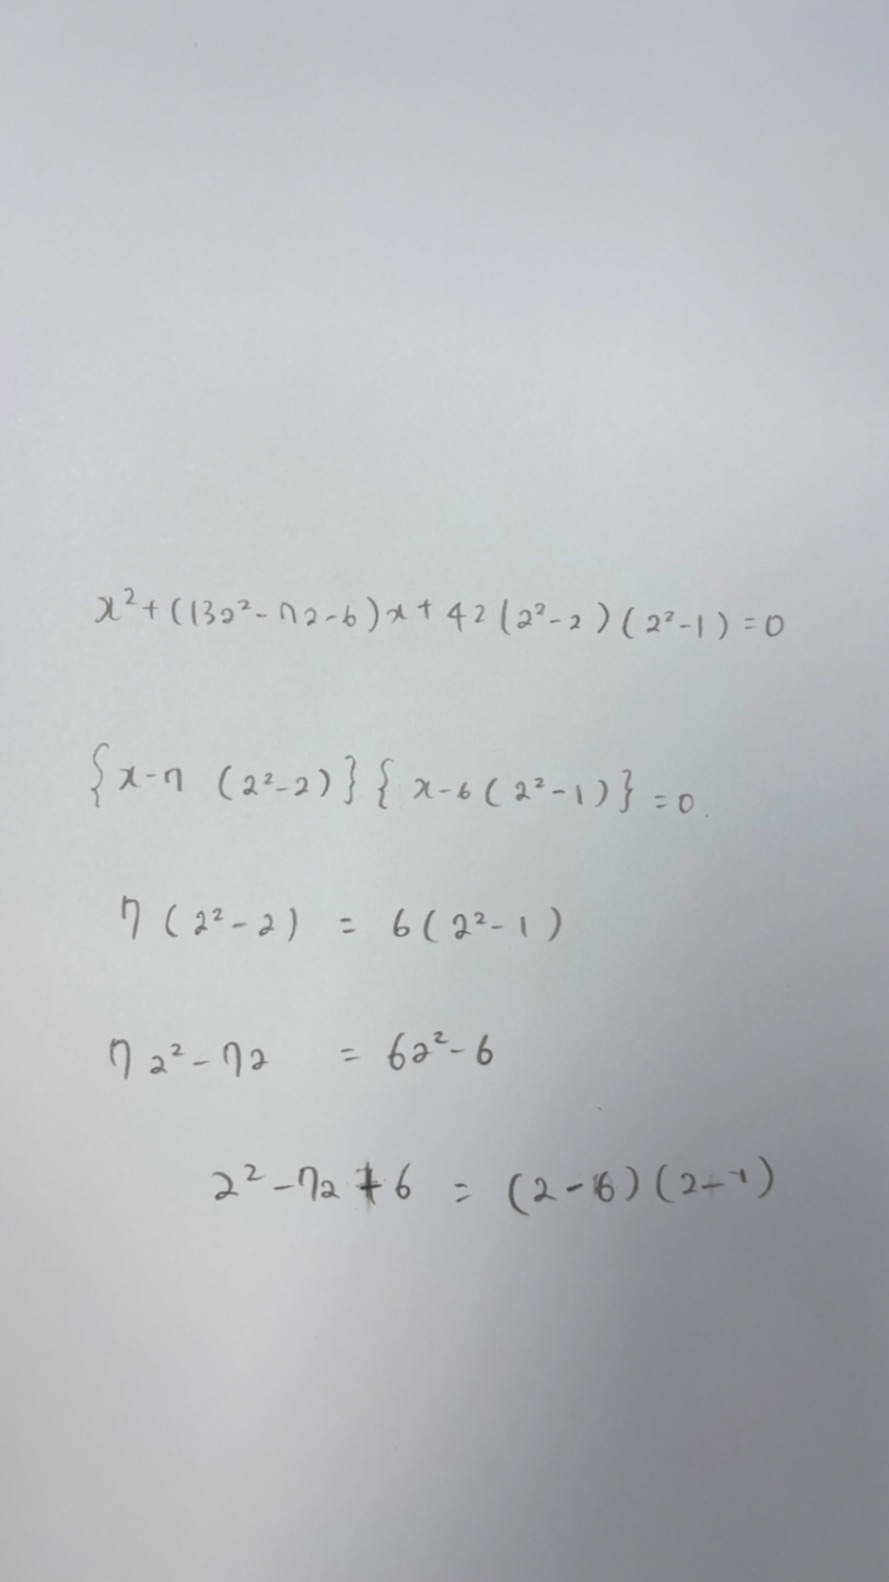 x²+(13a²-7a-6)x+42(a²-a)(a²-1)=0
{x-7 (a²-a)}{x-6(a²-1)}=0.
7(a²-a) = 6(a²-1)
7a²-7a = 6a²-6
a²-7a+6 = (a-6)(a-1)